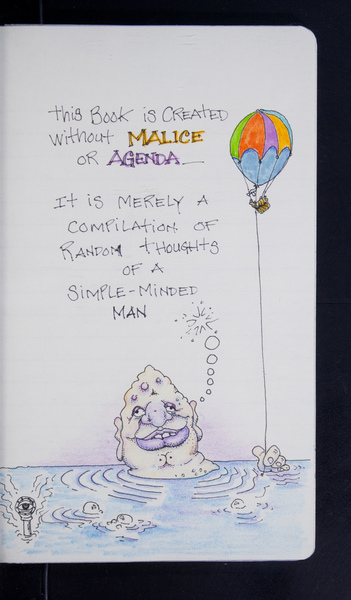 this Book is CREATED
without MALICE
OR AGENDA
It is MERELY A
COMPILATION OF
RANDOM thoughts
OF A
SIMPLE-MINDED
MAN